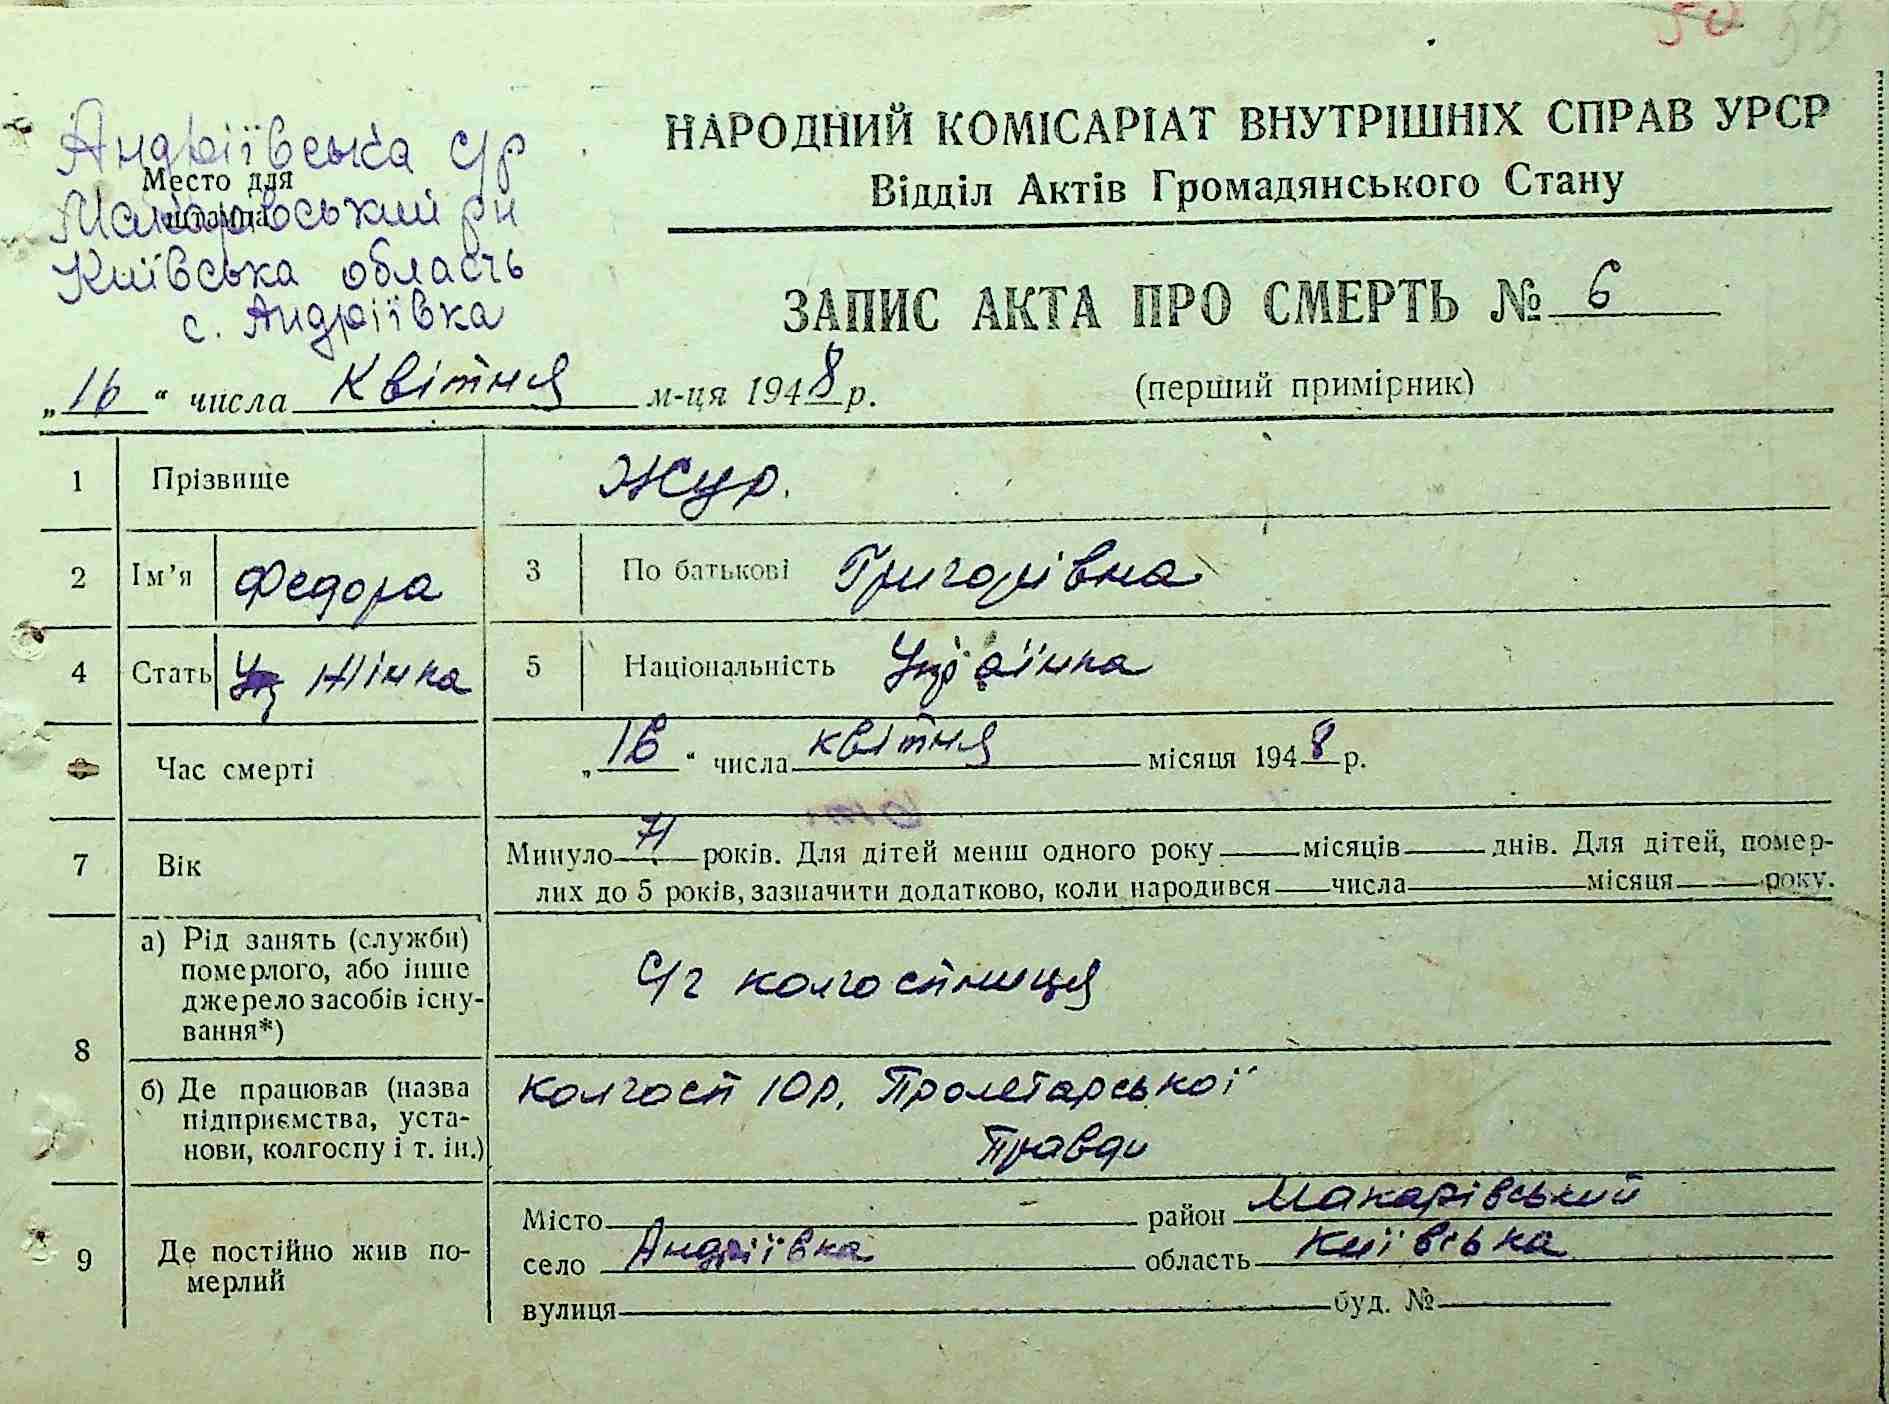 50
Андріївська с/р
Место для
штампа
Макарівський рн
Київська область
с. Андріївка
НАРОДНИЙ КОМІСАРІАТ ВНУТРІШНІХ СПРАВ УРСР
Відділ Актів Громадянського Стану
ЗАПИС АКТА ПРО СМЕРТЬ № 6
„16“ числа Квітня м-ця 1948 р.
(перший примірник)
1 Прізвище Жур.
2 Ім’я Федора 3 По батькові Григорівна
4 Стать Жінка 5 Національність Українка
Час смерті „16“ числа квітня місяця 1948 р.
7 Вік Минуло 71 років. Для дітей менш одного року місяців днів. Для дітей, помер-
лих до 5 років, зазначити додатково, коли народився числа місяця року.
8
а) Рід занять (служби)
померлого, або інше
джерело засобів існу-
вання*)
С/г колгоспниця
б) Де працював (назва
підприємства, уста-
нови, колгоспу і т. ін.)
колгосп 10р. Пролетарської
Правди
9 Де постійно жив по-
мерлий
Місто район Макарівський
село Андріївка область Київська
вулиця буд. №